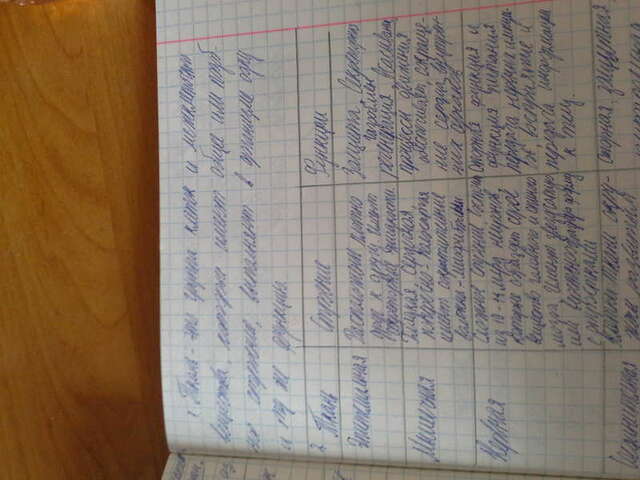 1. Ткань - это группа клеток и межклеточн.
вещества, которые имеют общее или подоб-
ное строение, выполняют в организме одну
и ту же функцию.
2. Ткань Строение Функции
Эпителиальная
Расположены плотно
друг к другу, имеют
секреторные жидкости.
Защита, секреторно
газообмен
регенерация, всасыван
Мышечная
Гладкая, Сердечная,
поперечно-полосатая
имеют сократительные
волокна-миофибриллы
процессы движения
обеспечивает, сокраще-
ние сердца, внутрен-
них органов.
Нервная
Сложное строение, состоит
из 10-14 млрд нейронов,
которые образуют серое
вещество головного и спинного
мозга. Имеют звездчатую
или веретенообразную форму
с отростками
функция и
функция питания
передача нервных импуль-
сов, восприятие и
передача информации
к телу.
Соединительная
клетки ткани окру-
жены развитым
опорная, защитная